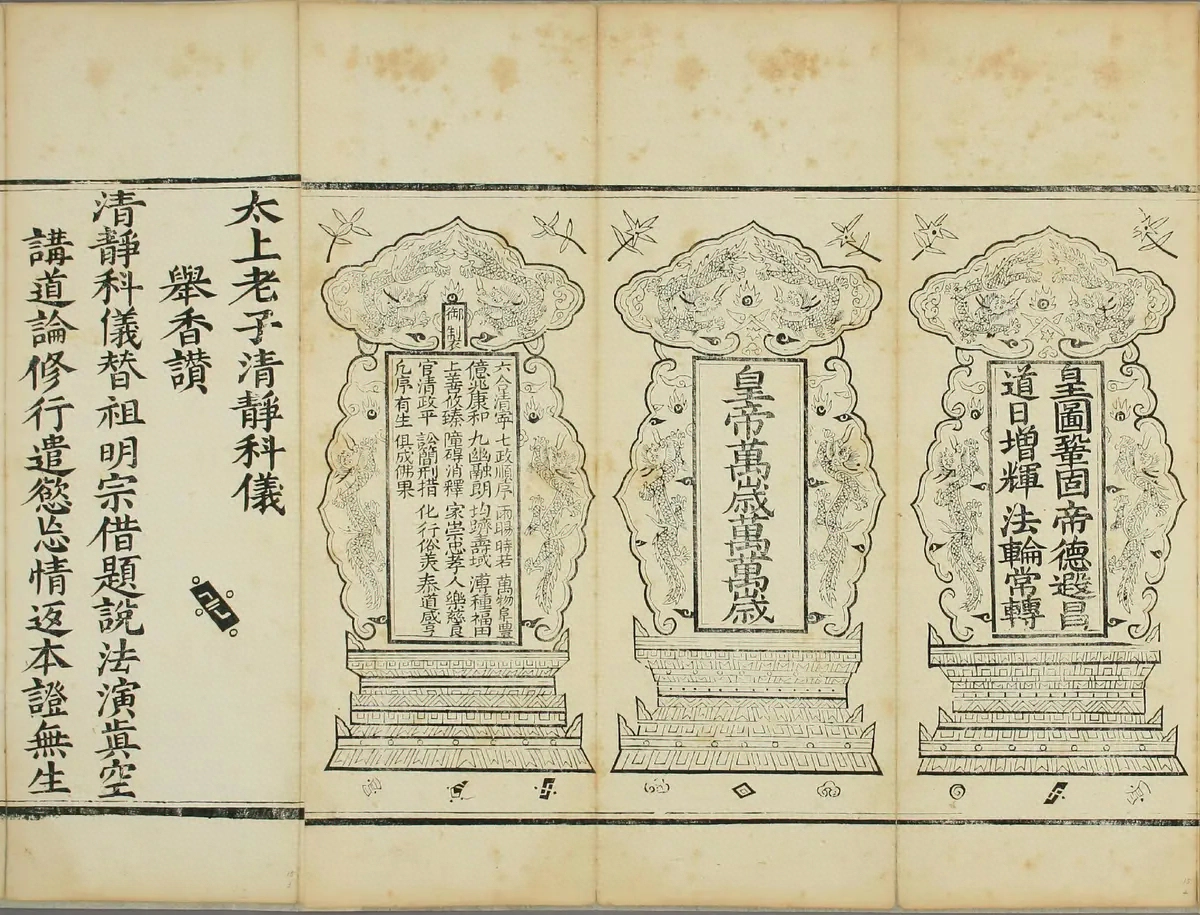 皇圖鞏固帝德遐昌
道日增輝 法輪常轉
皇帝萬歲萬萬歲
御製
六合清寧 七政順序 雨暘時若 萬物阜豐
億兆康和 九幽融朗 均躋壽域 溥種福田
上善攸臻 障碍消釋 家崇忠孝 人樂慈良
官清政平 訟簡刑措 化行俗美 泰道咸亨
凡厥有生 俱成佛果
太上老子清靜科儀
舉香讚
清靜科儀替祖明宗借題說法演眞空
講道論修行遣慾忘情返本證無生